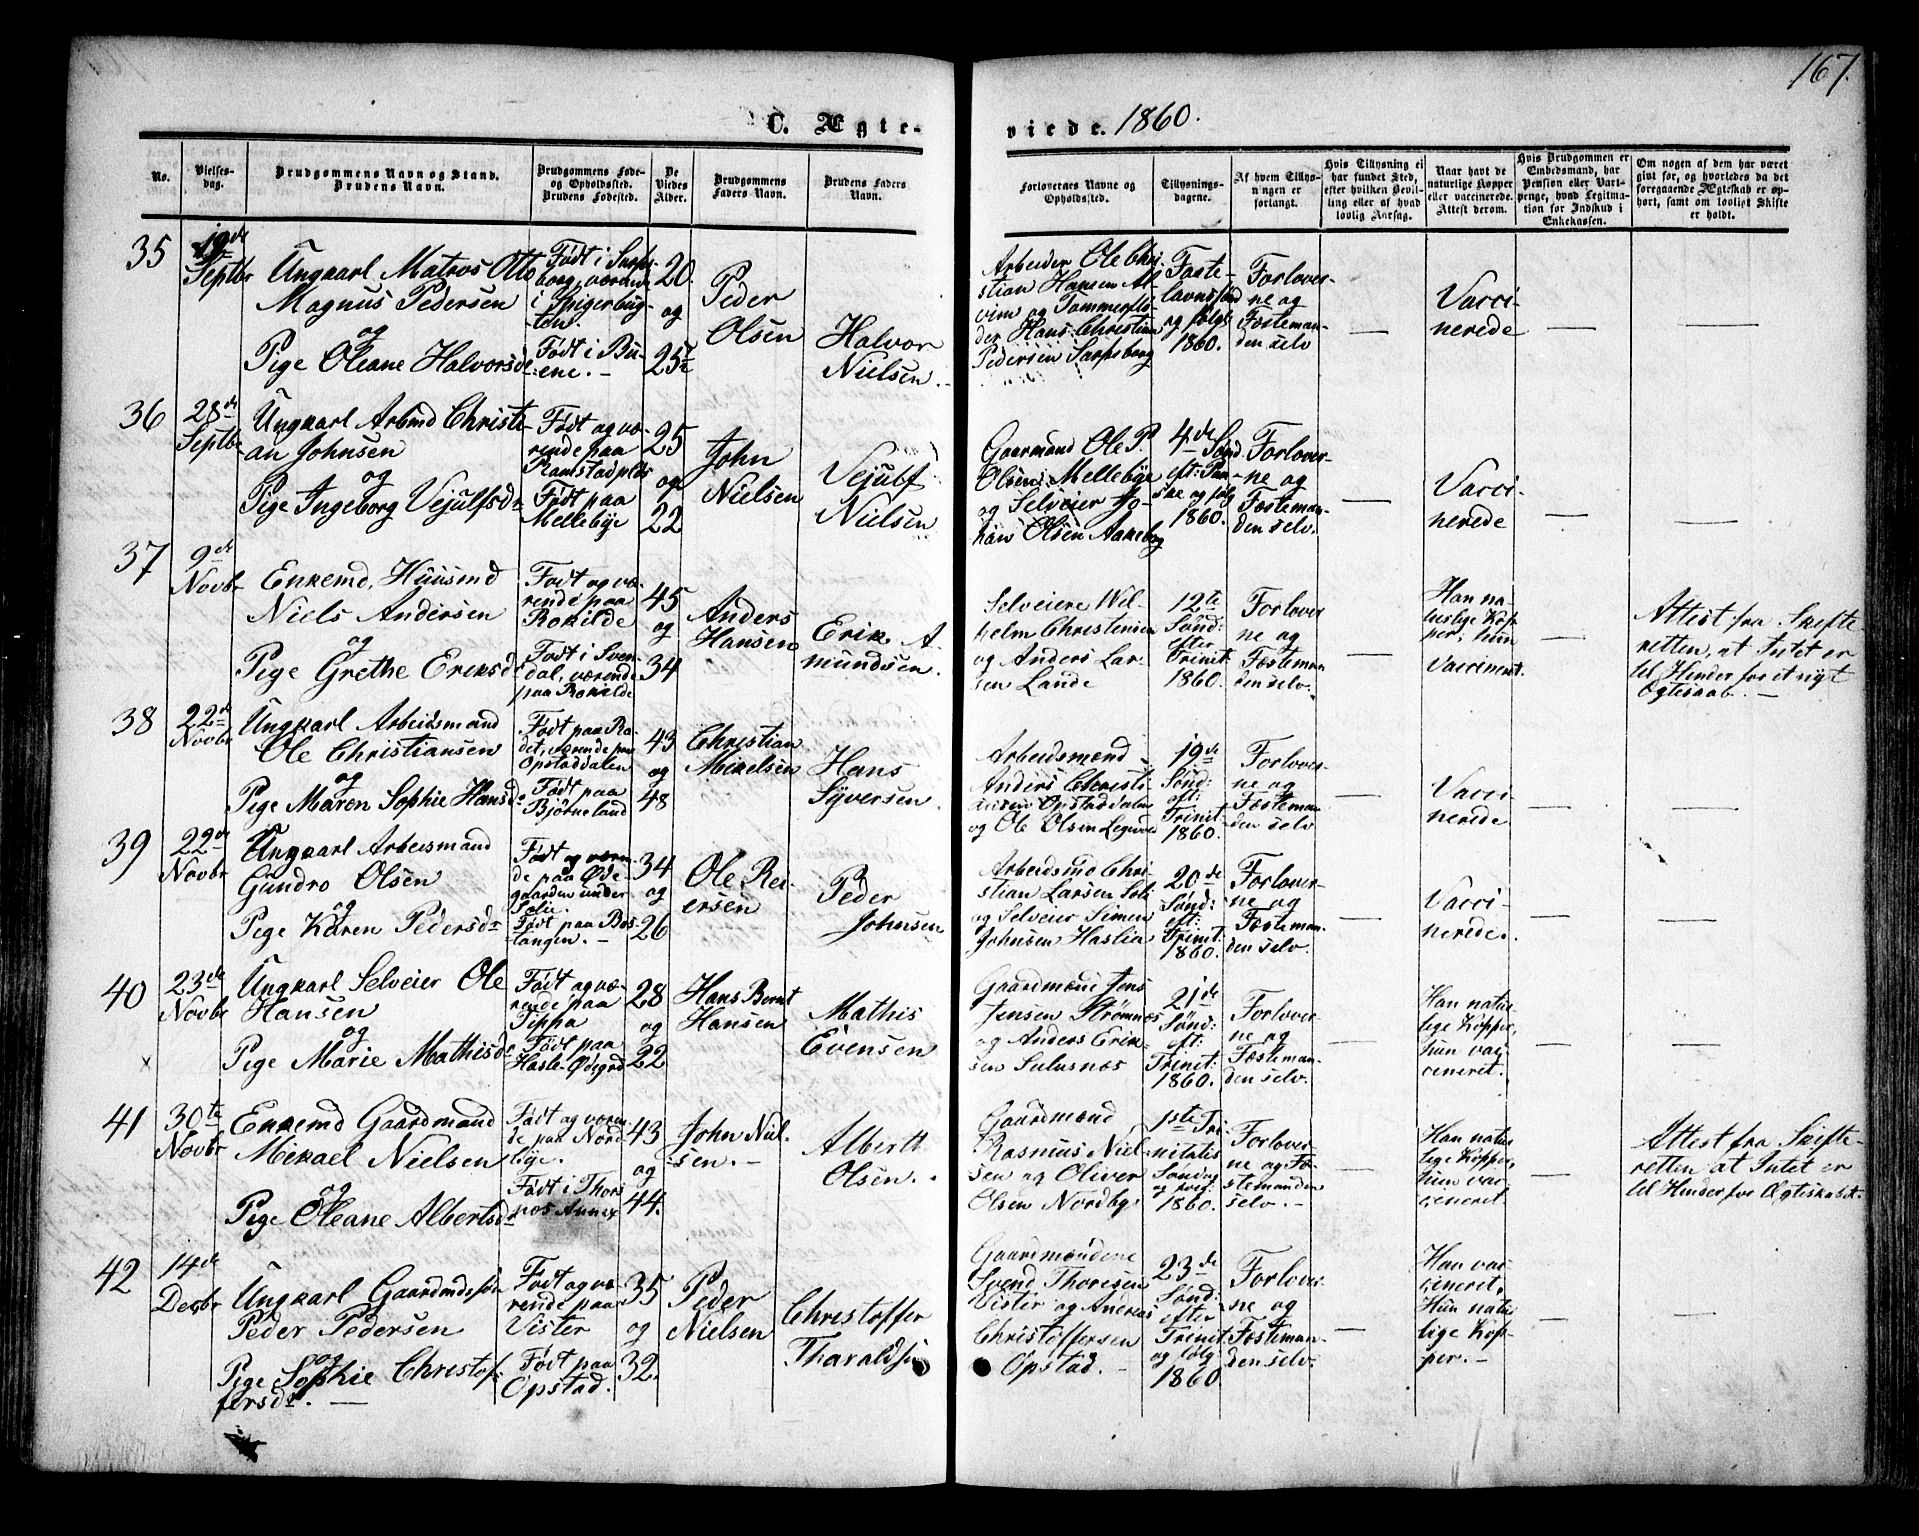 167.
C. Ægteviede. 1860.
No.
Vielsesdag.
Brudgommens Navn og Stand.
Brudens Navn.
Brudgommens Føde- og Opholdssted.
Brudens Fødested.
De Viedes Alder.
Brudgommens Faders Navn.
Brudens Faders Navn.
Forlovernes Navne og Opholdssted.
Tillysningsdagene.
Af hvem Tillysningen er forlangt.
Hvis Tillysning ei har fundet Sted, efter hvilken Bevilling eller af hvad lovlig Aarsag.
Naar havt de naturlige Kopper eller vaccinerede. Attest derom.
Hvis Brudgommen er Embedsmand, har Pension eller Vartpenge, hvad Legitimation for Indskud i Enkekassen.
Om nogen af dem har været givt før, og hvorledes da det foregaaende Ægteskab er ophørt, samt om lovligt Skifte er holdt.
35
19de
Septbr
Ungkarl Matros Otto
Magnus Pedersen
og
Pige Oleane Halvorsdr
Født i Sarps-
borg, værende
i Spigerbug-
ten.
Født i Bu-
ene. -
20
og
25
Peder
Olsen
Halvor
Nielsen.
Arbeider Ole Chri-
stian Hansen Al-
vim og Tømmerflø-
der Hans Christian
Pedersen Sarpsborg
Faste-
lavnssønd
og følg:
1860.
Forlover-
ne og
Fæsteman-
den selv
Vacci-
nerede
36
28de
Septbr
Ungkarl Arbmd Christi-
an Johnsen
og
Pige Ingeborg Vejulfsdr
Født og væ-
rende paa
Ramstadplds
Født paa
Mellebye
25
og
22
John
Nielsen
Vejulf
Nielsen
Gaarmand Ole P.
Olsen Mellebye
og Selveier Jo-
han Olsen Aakeberg
4de Sønd
eft: Paa-
ske og følg
1860.
Forlover-
ne og
Fæsteman-
den selv.
Vacci-
nerede
37
9de
Novbr
Enkemd. Huusmd
Niels Andersen
og
Pige Grethe Eriksdr
Født og væ-
rende paa
Rokilde
Født i Sven-
dal, værende
paa Rokilde
45
og
34
Anders
Hansen
Erik A-
mundsen.
Selveiere Wil-
helm Christensen
og Anders Lar-
sen Lande
12te
Sønd:
efter
Trinit:
1860.
Forlover
ne og
Fæsteman
den selv.
Han na-
turlige Kop-
per, hun
vaccineret.
Attest fra Skifte
retten, at Intet er
til Hinder for et nyt
Ægteskab. -
38
22de
Novbr
Ungkarl Arbeidsmand
Ole Christiansen
og
Pige Maren Sophie Hansdr
Født paa Ra-
det, værende paa
Opstaddalen
Født paa
Bjørneland
43
og
48
Christian
Mikelsen
Hans
Syversen.
Arbeidsmænd
Anders Christi-
ansen Opstaddalen
og Ole Olsen
19de
Sønd:
eft:
Trinit:
1860.
Forlover-
ne og
Fæsteman
den selv
Vacci-
nerede
39
22de
Novbr
Ungkarl Arbeidsmand
Gundro Olsen
og
Pige Karen Pedersdr
Født og væren-
de paa Øde-
gaarden under
Solie.
Født paa Bos-
tangen. -
34
og
26
Ole Rei-
ersen
Peder
Johnsen
Arbeidsmd Chri-
stian Larsen Soli
og Selveier Simen
Johnsen Haslia
20de
Sønd:
eft:
Trinit:
1860.
Forlover-
ne og
Fæsteman-
den selv
Vacci-
nerede.
40
23de
Novbr
Ungkarl Selveier Ole
Hansen
og
Pige Marie Mathisdr
Født og væ-
rende paa
Tippa
Født paa
Hasle-Ødegrd
28
og
22
Hans Bernt
Hansen
Mathis
Evensen
Gaardmænd Jens
Jensen Strømnæs
og Anders Erik-
sen Sulusnæs
21de
Sønd:
eft:
Trinit:
1860.
Forlover-
ne og
Fæsteman-
den selv.
Han natur
lige Kopper,
hun vac-
cineret.
41
30te
Novbr
Enkemd Gaardmand
Mikael Nielsen
og
Pige Oleane Albertsdr
Født og væren-
de paa Nord-
bye.
Født i Thors
nøs Annex
43
og
44.
John Niel-
sen. -
Albertt
Olsen.
Gaardmænd
Rasmus Niel-
sen og Oliver
Olsen Nordby
1ste Tri-
nitatis
Søndag
og følg:
1860.
Forlover-
ne og Fæ-
stemanden
selv. -
Han natur
lige Kopper,
hun vac-
cineret.
Attest fra Skifte-
retten at Intet er
til Hinder for Ægteskabet.
42
14de
Decbr
Ungkarl Gaardmdssøn
Peder Pedersen
og
Pige Sophie Christof-
fersdr. -
Født og væ-
rende paa
Vister
Født paa
Opstad.
35
og
32.
Peder
Nielsen
Christoffer
Tharaldsen
Gaardmændene
Svend Thoresen
Vister og Andreas
Christoffersen
Opstad. -
23de
Sønd:
efter
Trinit:
og følg:
1860.
Forlover
ne og
Fæsteman-
den selv.
Han vac-
cineret,
Hun natur
lige Kop-
per. -